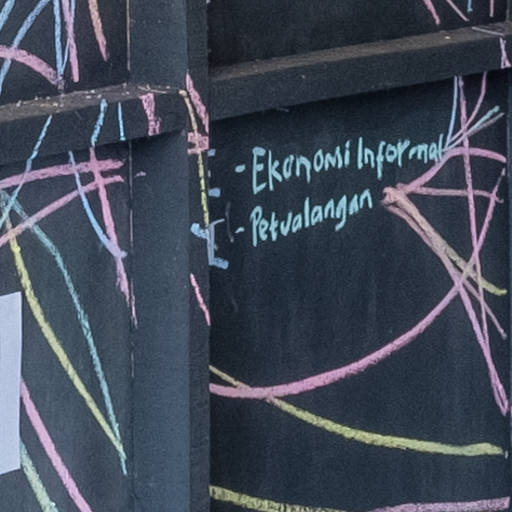 - Ekonomi Informal
- Petualangan